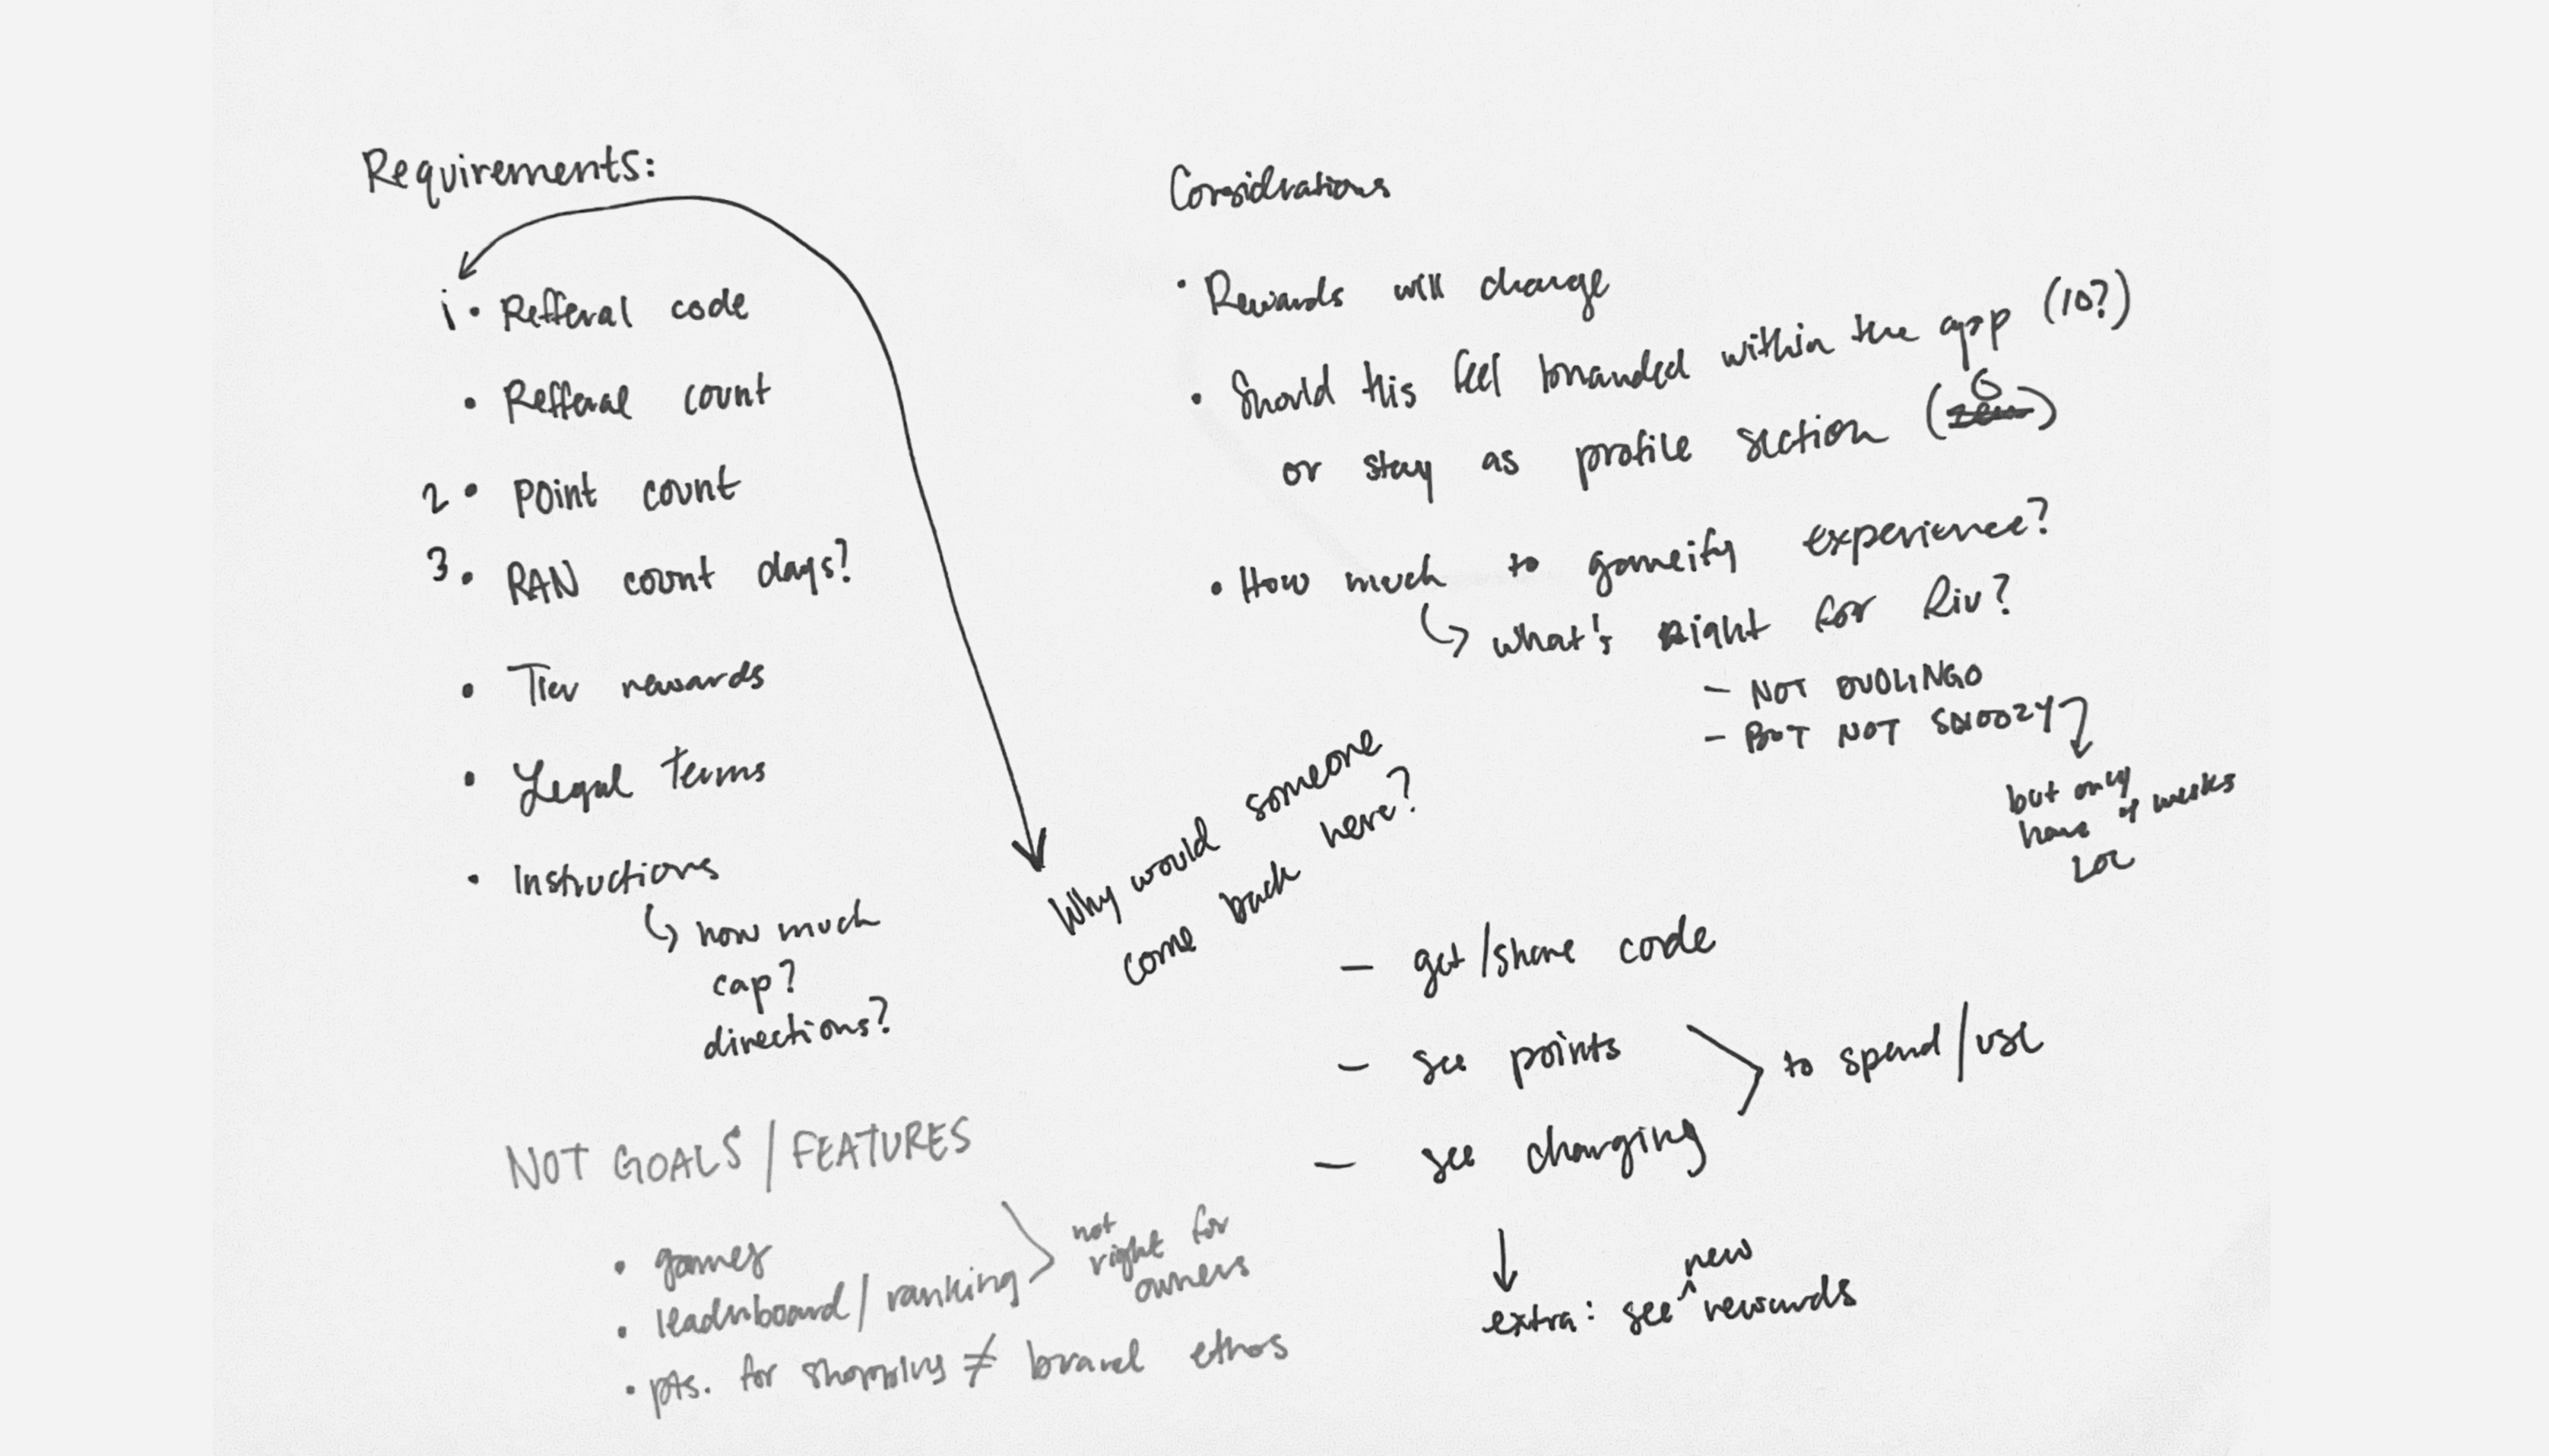 Requirements:
1 • Refferal code
• Refferal count
2 • Point count
3 • RAN count days?
• Tier rewards
• Legal terms
• Instructions
how much
cap?
directions?
NOT GOALS / FEATURES
• games
• leaderboard / ranking
not
right for
owners
• pts. for shopping ≠ brand ethos
Considerations
• Rewards will change
• Should this feel branded within the app (10?)
or stay as profile section (0)
• How much to gameify experience?
what's right for Riv?
- NOT DUOLINGO
- BUT NOT SNOOZY
but only
have 4 weeks
LOL
Why would someone
come back here?
- get/share code
- see points
- see charging
to spend/use
extra: see new rewards